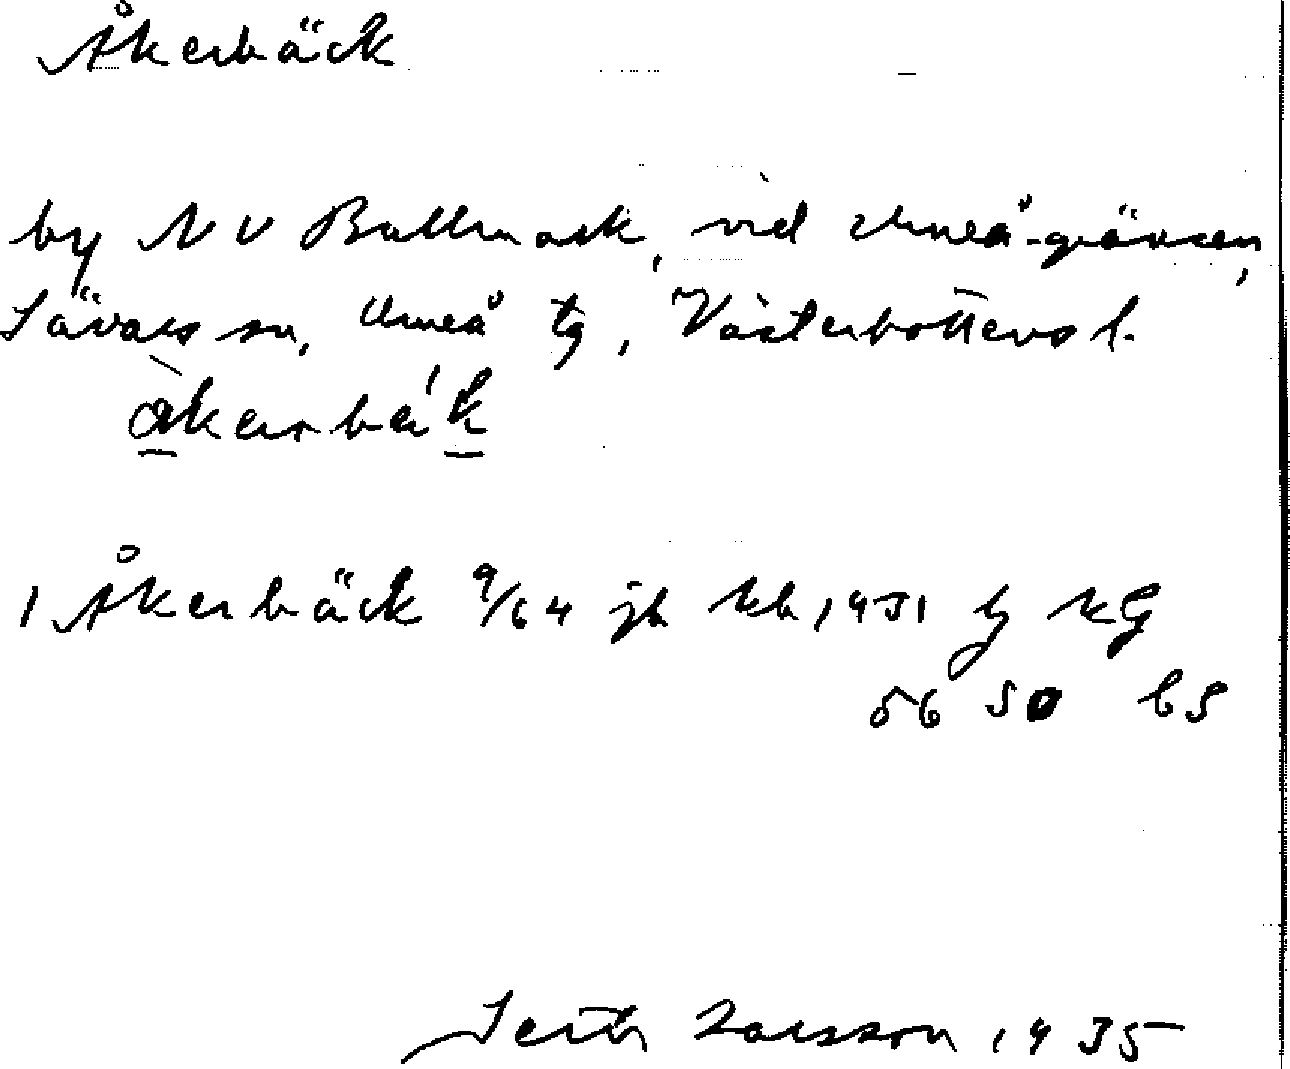 Åkerbäck
by NV Bullmark, vid Umeå-gränsen,
Sävars sn, Umeå tg, Västerbottens l.
åkerbäk
1 Åkerbäck 9/64 jb kb, 1931 by KG
56 50 bS
Seth Larsson 1935